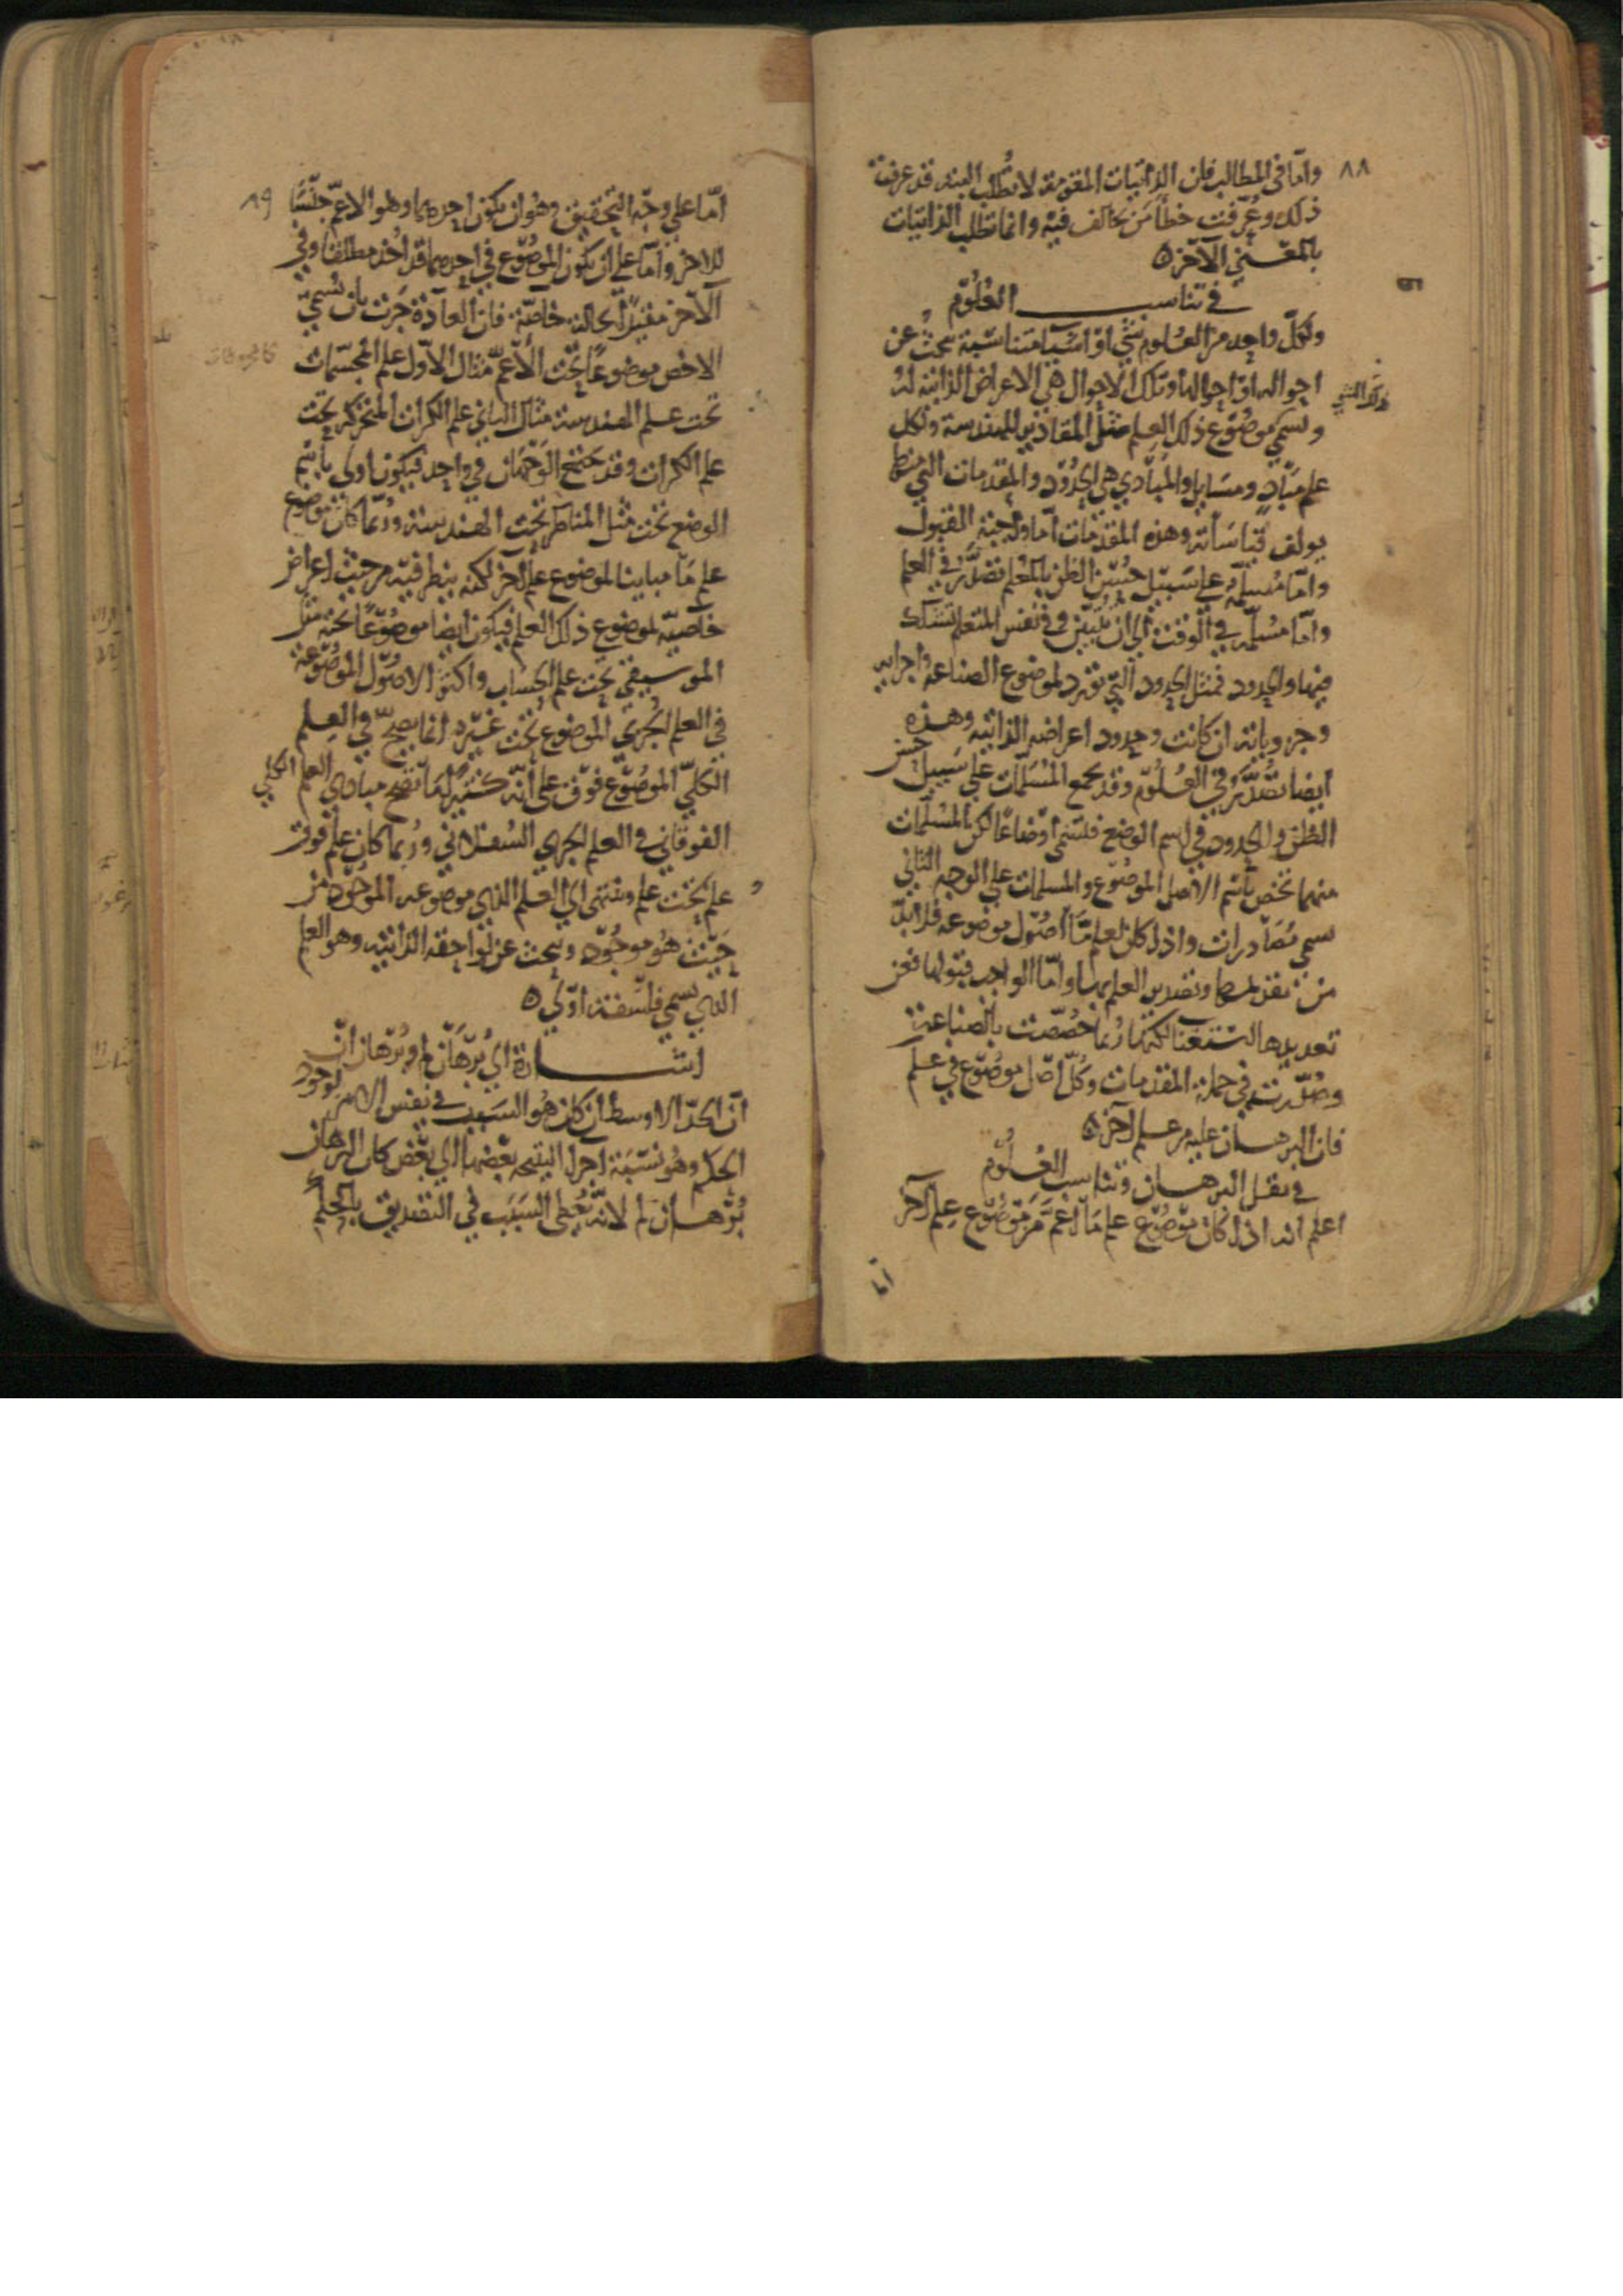 ٨٨
واما في المطالب فان الذاتيات المقومة لا تُطلب البتة قد عرفت
ذلك وعُرّفت خطأ مَن يخالف فيه وانما تطلب الذاتيات
بالمعنى الآخر ٥
في تناسب العُلُوم
ولكلّ واحد من العلوم شئ او اشيا متناسبة يبحث عن
احواله او احوالها وتلك الاحوال هي الاعراض الذاتية له
ويسمى موضوع ذلك العلم مثل المقادير للهندسة ولكل
علم مبادٍ ومسايل والمبادي هي الحدود والمقدمات التي منها
يولف قياساته وهذه المقدمات اما واجبة القبول
واما مُسلمة على سبيل حُسن الظن بالمعلم تصدّر في العلم
واما مسلمة في الوقت الى ان تتبين وفي نفس المتعلم تشكك
فيها والحدود فمثل الحدود التي تورد لموضوع الصناعه واجزايه
وجزوياته ان كانت وحدود اعراضه الذاتيه وهذه
ايضا تُصدّر في العُلُوم وقد يجمع المُسَلمات على سبيل حسن
الظن والحدود في اسم الوضع فتسمى اوضاعا لكن المسلمات
منهما تخص باسم الاصل الموضوع والمسلمات على الوجه الثاني
سمي مُصَادرات واذا كان لعلم مّا اصُول موضوعه فلا بُدّ
من تقديمها وتصدير العلم بها واما الواجب قبولها فعن
تعديدها استغنا لكنها رُبما خصّصت بالصناعة
وصُدّرت في جملة المقدمات وكُلّ اصل موضوع في علم
فان البرهان عليه من علم اخر ٥
في نقل البرهان وتناسب العُلُوم
اعلم انه اذا كان موضوع علم مّا اعمّ من موضوع علم آخر
اما
٨٩
امّا على وجه التحقيق وهو ان يكون احدهما وهو الاعمّ جنسًا
للاخر واما على ان يكون الموضوع في احدهما قد اُخذ مطلقا وفي
الآخر مقيدًا بحالة خاصّة فان العادة جَرَت بان تُسمّى
الاخص موضوعًا تحت الاعمّ مثال الاول علم المجسّمات
تحت علم الهندسة مثال الثاني علم الكرات المتحركة تحت
علم الكرات وقد يجتمع الوجهان في واحد فيكون اولى باسم
الوضع تحت مثل المناظر تحت الهندسة ورُبّما كان موضوع
علم مّا مباينا لموضوع علم آخر لكنه ينظر فيه من حيث اعراض
خاصيّة لموضوع ذلك العلم فيكون ايضا موضوعًا تحته مثل
الموسيقى تحت علم الحساب واكثر الاصُول الموضُوعة
في العلم الجُزئ الموضوع تحت غيره انما يصحّ في العلم
الكلّي الموضُوع فوق على انّه كثيرًا مّا تصح مبادي العلم الكلي
الفوقاني في العلم الجزئي السُفلاني ورُبما كان علم فوق
علم تحت علم وينتهى الى العلم الذي موضوعه الموجود من
حيث هُو موجُود ويبحث عن لواحقه الذاتيه وهو العلم
الذي يسمى فلسفة اولى ٥
اشارة الى بُرهان لم وبُرهان انّ
انّ الحدّ الاوسط ان كان هُو السَبب في نفس الامر لوجود
الحكم وهُو نسبَة اجزا النتيجه بعضها الى بعض كان البرهان
بُرهان لم لانّه يُعطى السَبَب في التصديق بالحكم